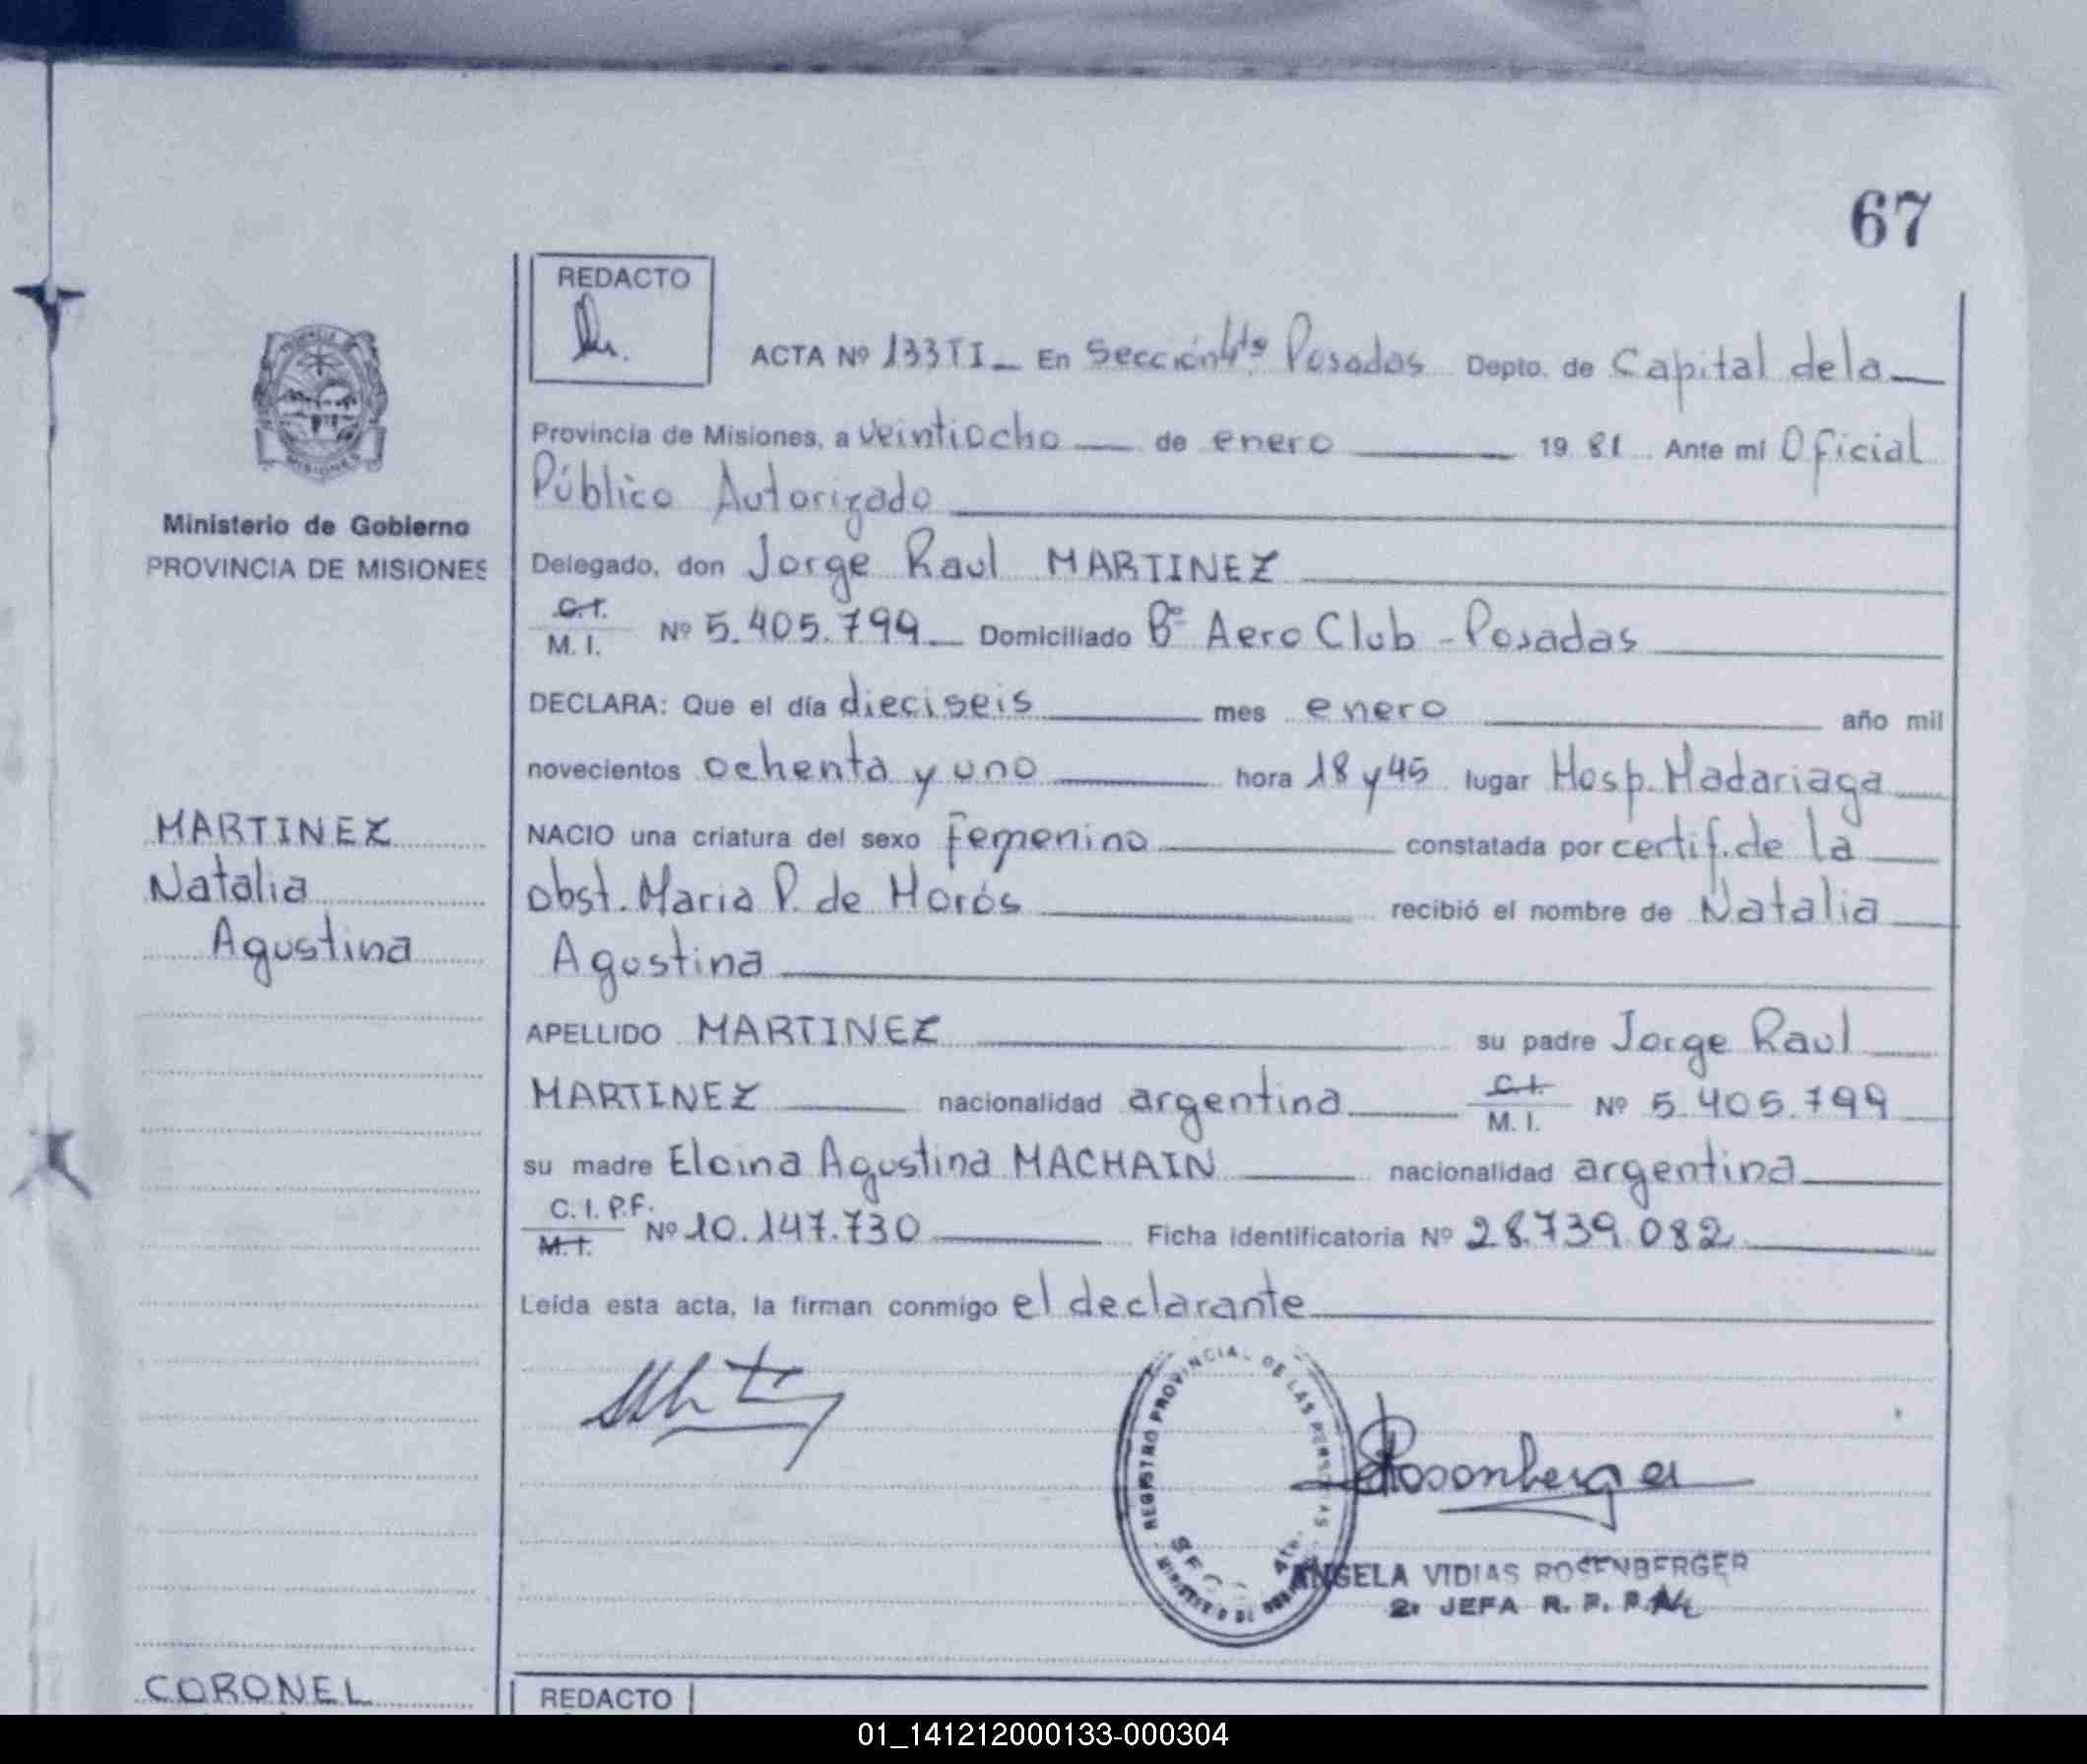 67
REDACTO
ACTA Nº 133TI En Sección 4ta Posadas Depto. de Capital de la
Provincia de Misiones, a veintiocho de enero 19 81 Ante mi Oficial
Público Autorizado
Delegado, don Jorge Raul MARTINEZ
C.I.
M. I. Nº 5.405.799 Domiciliado Bº Aero Club - Posadas
DECLARA: Que el día dieciseis mes enero año mil
novecientos ochenta y uno hora 18 y 45 lugar Hosp. Madariaga
NACIO una criatura del sexo femenino constatada por certif. de la
obst. Maria P. de Morós recibió el nombre de Natalia
Agustina
APELLIDO MARTINEZ su padre Jorge Raul
MARTINEZ nacionalidad argentina C.I.
M. I. Nº 5.405.799
su madre Eloina Agustina MACHAIN nacionalidad argentina
C. I. P.F.
M. I. Nº 10.147.730 Ficha identificatoria Nº 28.739.082
Leída esta acta, la firman conmigo el declarante
MISIONES
Ministerio de Gobierno
PROVINCIA DE MISIONES
MARTINEZ
Natalia
Agustina
REGISTRO PROVINCIAL DE LAS PERSONAS
4ta.
Rosenberger
ANGELA VIDIAS ROSENBERGER
2ª JEFA R. P. P.
CORONEL
REDACTO
01_141212000133-000304